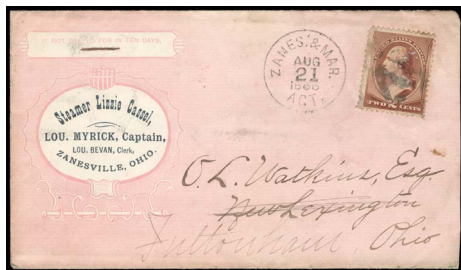 IF NOT CALLED FOR IN TEN DAYS,
Steamer Lizzie Cassel,
LOU. MYRICK, Captain,
LOU. BEVAN, Clerk,
ZANESVILLE, OHIO.
ZANES. & MAR.
AUG
21
AGT.
TWO CENTS
O. L. Watkins, Esq.
New Lexington
Fultonham, Ohio